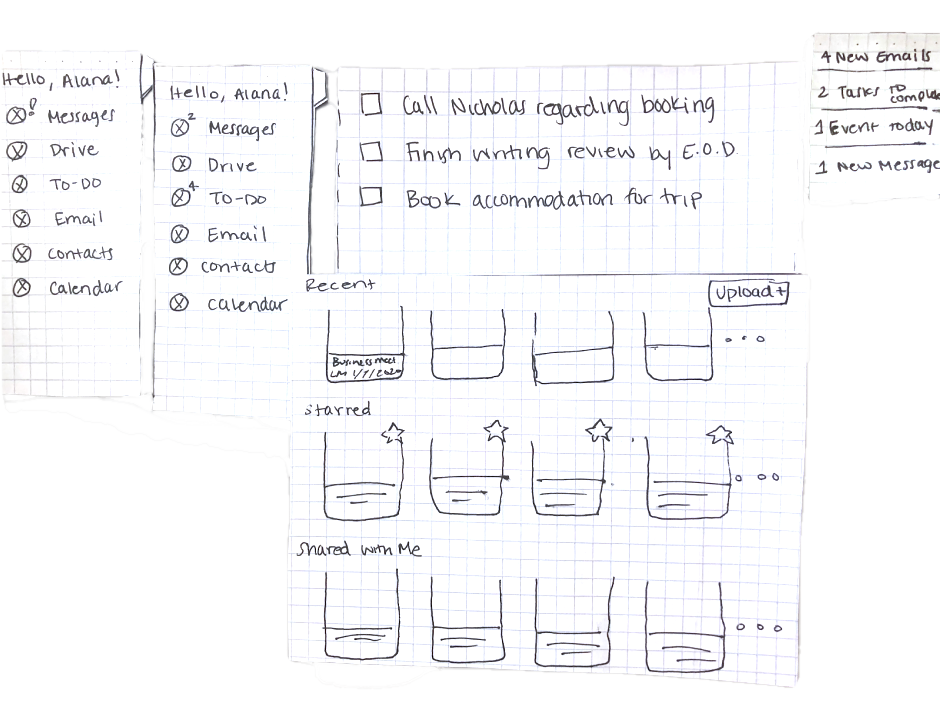 Hello, Alana!
! Messages
Drive
To-Do
Email
Contacts
Calendar
Hello, Alana!
2 Messages
Drive
4 To-Do
Email
Contacts
Calendar
Call Nicholas regarding booking
Finish writing review by E.O.D.
Book accommodation for trip
4 New Emails
2 Tasks to
complete
1 Event Today
1 New Message
Recent
Upload +
Business meet
1/7/2020
Starred
Shared with Me